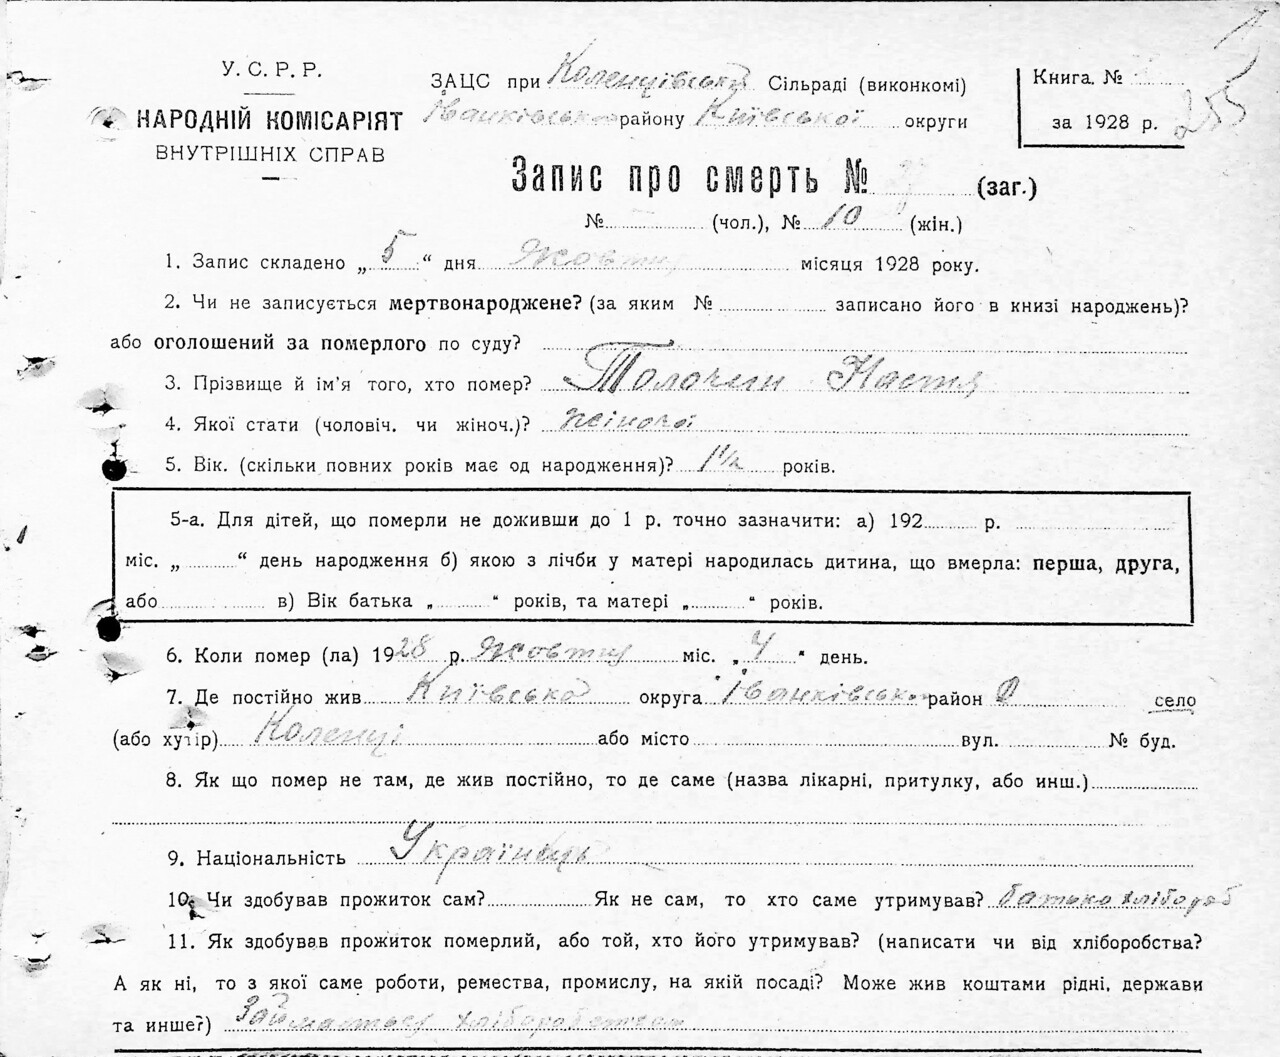 У. С. Р. Р.
НАРОДНІЙ КОМІСАРІЯТ
ВНУТРІШНІХ СПРАВ
ЗАЦС при Коленцівській Сільраді (виконкомі)
Іванківського району Київської округи
Книга. №
за 1928 р.
255
Запис про смерть № (заг.)
№ (чол.), № 10 (жін.)
1. Запис складено „ 5 “ дня Жовтня місяця 1928 року.
2. Чи не записується мертвонароджене? (за яким № записано його в книзі народжень)?
або оголошений за померлого по суду?
3. Прізвище й ім’я того, хто помер? Толочин Настя
4. Якої стати (чоловіч. чи жіноч.)? жіночої
5. Вік. (скільки повних років має од народження)? 1 1/2 років.
5-а. Для дітей, що померли не доживши до 1 р. точно зазначити: а) 192 р.
міс. „ “ день народження б) якою з лічби у матері народилась дитина, що вмерла: перша, друга,
або в) Вік батька „ “ років, та матері „ “ років.
6. Коли помер (ла) 1928 р. Жовтня міс. „ 4 “ день.
7. Де постійно жив Київська округа Іванківський район село
(або хутір) Коленці або місто вул. № буд.
8. Як що помер не там, де жив постійно, то де саме (назва лікарні, притулку, або инш.)
9. Національність Українець
10. Чи здобував прожиток сам? Як не сам, то хто саме утримував? батько хлібороб
11. Як здобував прожиток померлий, або той, хто його утримував? (написати чи від хліборобства?
А як ні, то з якої саме роботи, ремества, промислу, на якій посаді? Може жив коштами рідні, держави
та инше?) хліборобством